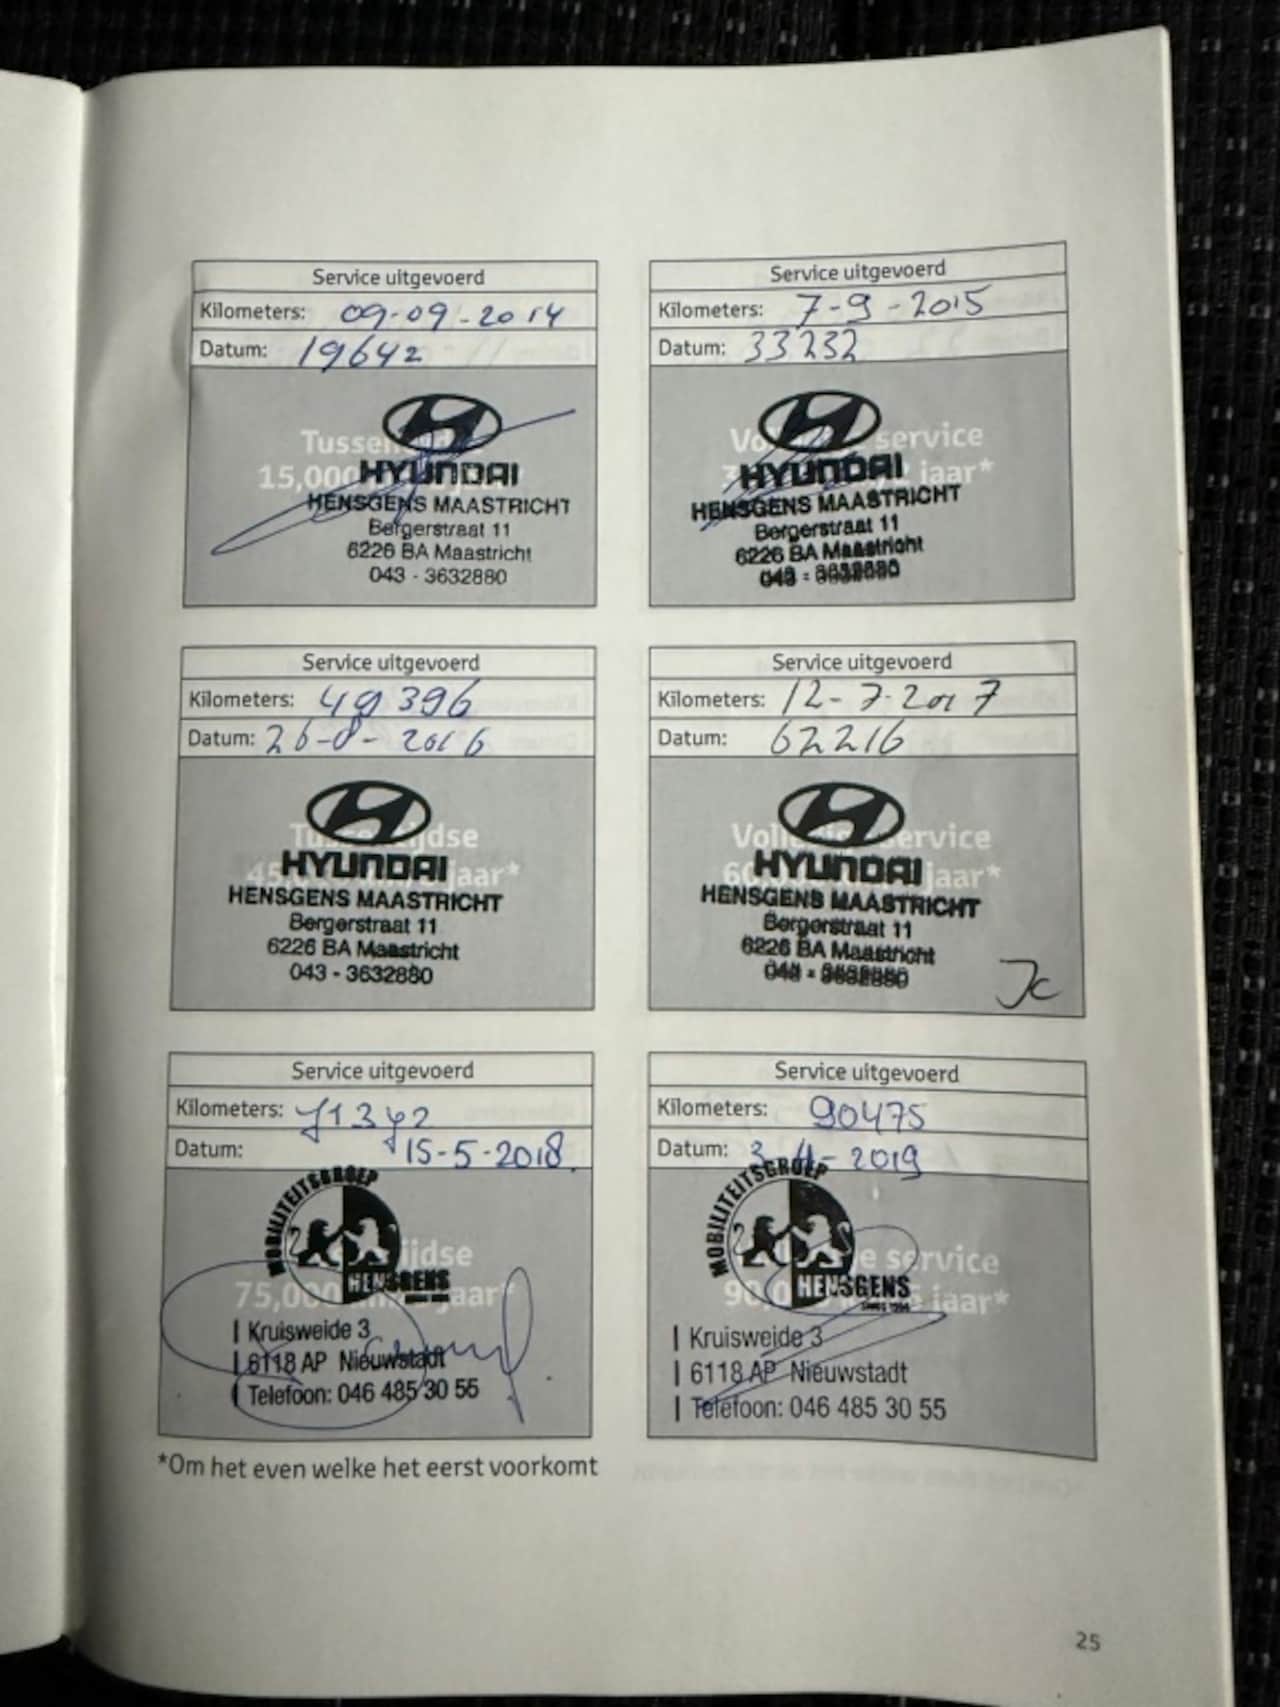 Service uitgevoerd
Kilometers: 09-09-2014
Datum: 19642
15,000
HYUNDAI
HENSGENS MAASTRICHT
Bergerstraat 11
6226 BA Maastricht
043 - 3632880
Service uitgevoerd
Kilometers: 7-9-2015
Datum: 33232
service
jaar*
HYUNDAI
HENSGENS MAASTRICHT
Bergerstraat 11
6226 BA Maastricht
043 - 3632880
Service uitgevoerd
Kilometers: 49396
Datum: 26-8-2016
Tussentijdse
jaar*
HYUNDAI
HENSGENS MAASTRICHT
Bergerstraat 11
6226 BA Maastricht
043 - 3632880
Service uitgevoerd
Kilometers: 12-7-2017
Datum: 62216
Volledige service
jaar*
HYUNDAI
HENSGENS MAASTRICHT
Bergerstraat 11
6226 BA Maastricht
043 - 3632880
Jc
Service uitgevoerd
Kilometers:
Datum: 15-5-2018
MOBILITEITSGROEP
HENSGENS
75,000 jaar*
Kruisweide 3
6118 AP Nieuwstadt
Telefoon: 046 485 30 55
Service uitgevoerd
Kilometers: 90475
Datum: 2019
MOBILITEITSGROEP
service
HENSGENS
jaar*
Kruisweide 3
6118 AP Nieuwstadt
Telefoon: 046 485 30 55
*Om het even welke het eerst voorkomt
25